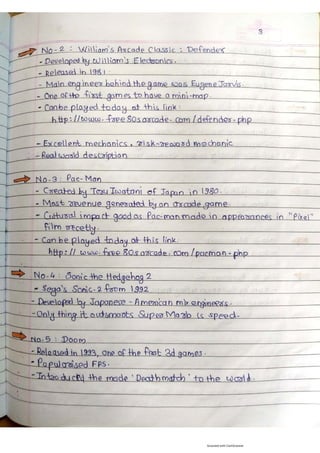 3
No-2 : William's Arcade Classic : Defender
- Developed by William's Electronics.
- Released in 1981
- Main engineer behind the game was Eugene Jarvis.
- One of the first games to have a mini-map.
- Can be played today at this link:
http://www.free80sarcade.com/defender.php
- Excellent mechanics, risk-reward mechanic
- Real world description
No-3 : Pac-Man
- Created by Toru Iwatani of Japan in 1980.
- Most revenue generated by an arcade game.
- Cultural impact good as Pac-man made in appearances in "Pixel"
film recetly.
- Can be played today at this link.
http:// www.free80sarcade.com/pacman.php
No-4 : Sonic the Hedgehog 2
- Sega's Sonic-2 from 1992
- Developed by Japanese-American mix engineers.
- Only thing it outsmarts Super Mario is speed.
No.5 : Doom
- Released in 1993, one of the first 3d games.
- Popularised FPS.
- Introduced the mode 'Deathmatch' to the world.
Scanned with CamScanner